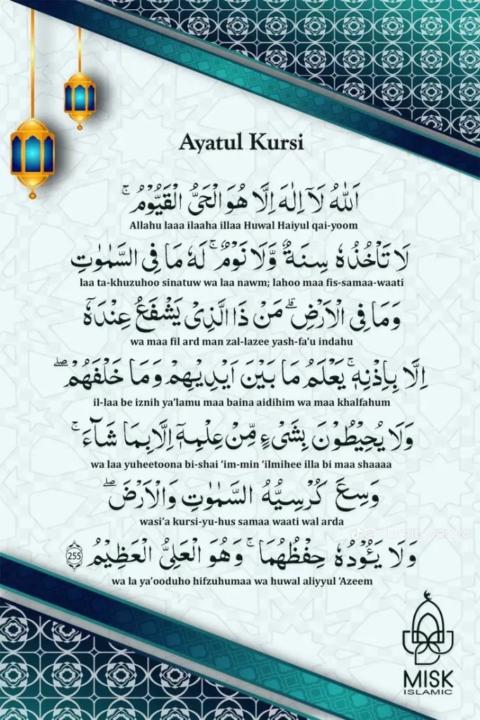 Ayatul Kursi
اَللّٰهُ لَآ اِلٰهَ اِلَّا هُوَ الْحَىُّ الْقَيُّوْمُ ۚ
Allahu laaa ilaaha illaa Huwal Haiyul qai-yoom
لَا تَاْخُذُهٗ سِنَةٌ وَّلَا نَوْمٌ ؕ لَهٗ مَا فِى السَّمٰوٰتِ
laa ta-khuzuhoo sinatuw wa laa nawm; lahoo maa fis-samaa-waati
وَمَا فِى الْاَرْضِ ؕ مَنْ ذَا الَّذِىْ يَشْفَعُ عِنْدَهٗٓ
wa maa fil ard man zal-lazee yash-fa'u indahu
اِلَّا بِاِذْنِهٖ ؕ يَعْلَمُ مَا بَيْنَ اَيْدِيْهِمْ وَمَا خَلْفَهُمْ ۚ
il-laa be iznih ya'lamu maa baina aidihim wa maa khalfahum
وَلَا يُحِيْطُوْنَ بِشَىْءٍ مِّنْ عِلْمِهٖٓ اِلَّا بِمَا شَآءَ ۚ
wa laa yuheetoona bi-shai 'im-min 'ilmihee illa bi maa shaaaa
وَسِعَ كُرْسِيُّهُ السَّمٰوٰتِ وَالْاَرْضَ ۚ
wasi'a kursi-yu-hus samaa waati wal arda
وَلَا يَـُٔوْدُهٗ حِفْظُهُمَا ۚ وَهُوَ الْعَلِىُّ الْعَظِيْمُ 255
wa la ya'ooduho hifzuhumaa wa huwal aliyyul 'Azeem
MISK
ISLAMIC